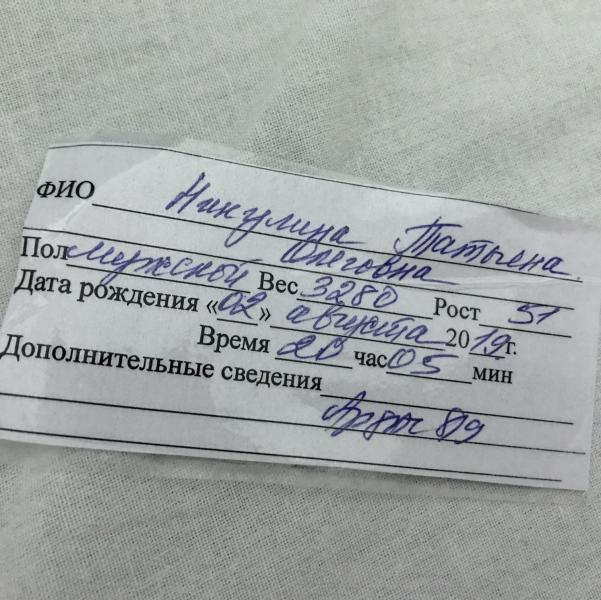 ФИО Никулина Татьяна
Олеговна
Пол мужской Вес 3280 Рост 51
Дата рождения «02» августа 2019г.
Время 20 час 05 мин
Дополнительные сведения
8/9